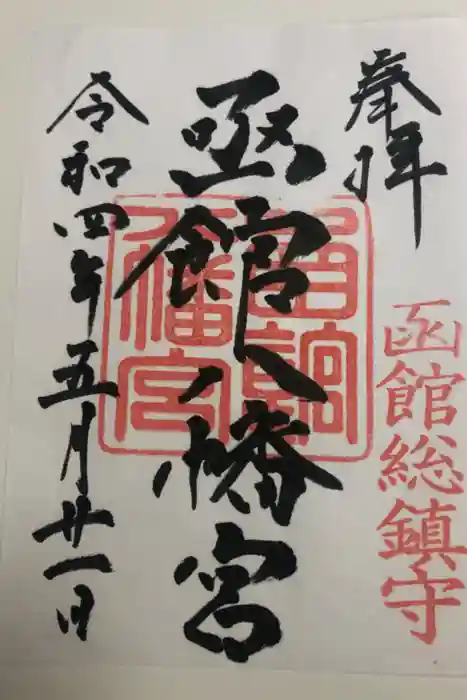 奉拝
函館総鎮守
函館八幡宮
令和四年五月廿一日